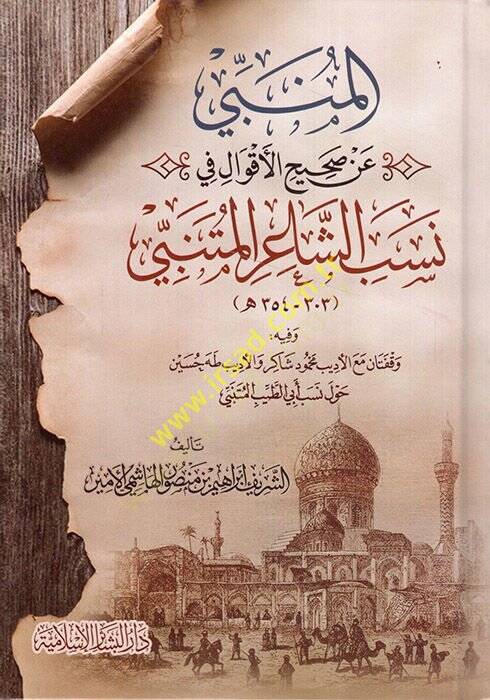 المُنَبِّي
عَنْ صَحِيحِ الأَقْوَالِ فِي
نَسَبِ الشَّاعِرِ المُتَنَبِّي
(٣٠٣ - ٣٥٤ هـ)
وَفِيهِ:
وَقْفَتَانِ مَعَ الأَدِيبِ مَحْمُود شَاكِر وَالأَدِيبِ طَهَ حُسَيْن
حَوْلَ نَسَبِ أَبِي الطَّيِّبِ المُتَنَبِّي
تَأليفُ
الشَّرِيف إبْرَاهِيم بن مَنْصُور الهَاشِمِيّ الأَمِير
دَارُ البَشَائِرِ الإِسْلَامِيَّة
www.irsad.com.tr